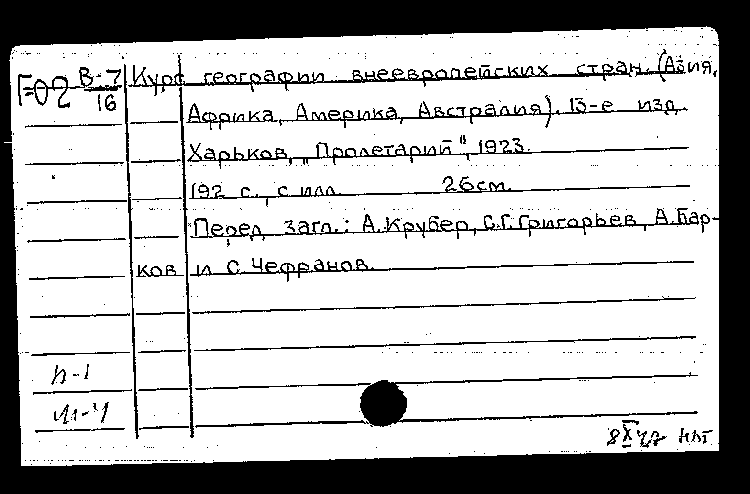 Г-02 В-7/16 Курс географии внеевропейских стран. (Азия,
Африка, Америка, Австралия). 13-е изд.
Харьков, „Пролетарий", 1923.
192 с., с илл. 26см.
Перед загл.: А.Крубер, С.Г.Григорьев, А.Бар-
ков и С.Чефранов.